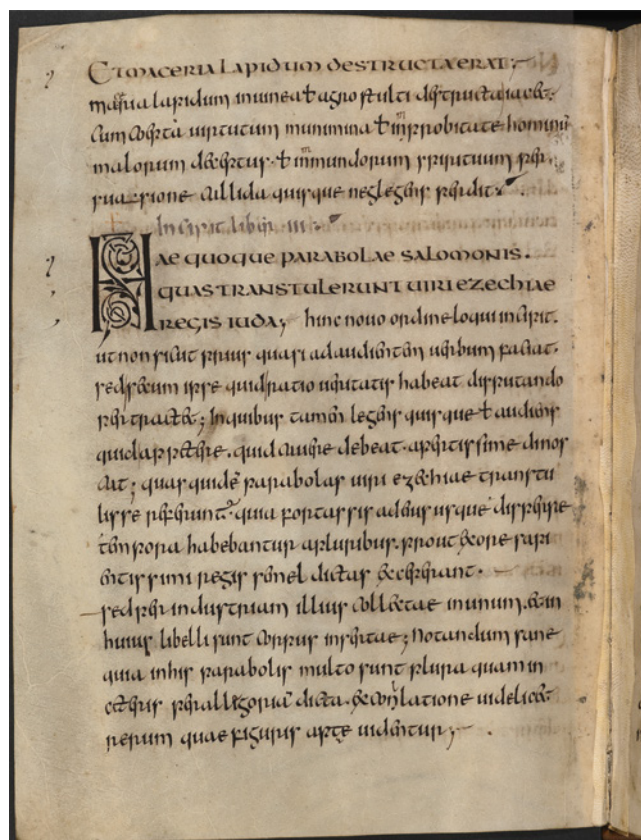 Et maceria lapidum destructa erat;
maceria lapidum in uinea ł agro stulti destructa iacet.
Cum coepta uirtutum munimina ł inprobitate hominum
malorum deceptus ł inmundorum spirituum per
suassione callida quisque neglegens perdit.
Incipit liber III.
Hae quoque parabolae salomonis.
quas transtulerunt uiri ezechiae
regis iuda; hinc nouo ordine loqui incipit.
ut non sicut prius quasi ad audientem uerbum faciat.
sed secum ipse quid ratio ueritatis habeat disputando
pertractet; In quibus tamen legens quisque ł audiens
quid appetere. quid cauere debeat. apertissime dinos
cit; quas quidē parabolas uiri ezechiae transtu
lisse referunt. quia fortassis adhuc usque disperse
tempora habebantur a pluribus. prout ex ore sapi
entissimi regis semel dictas exceperant.
sed per industriam illius collectae in unum. et in
huius libelli sunt corpus insertae; Notandum sane
quia in his parabolis multo sunt plura quam in
ceteris per allegoriā dicta. ex conlatione uidelicet
rerum quae figuris apte uidentur;